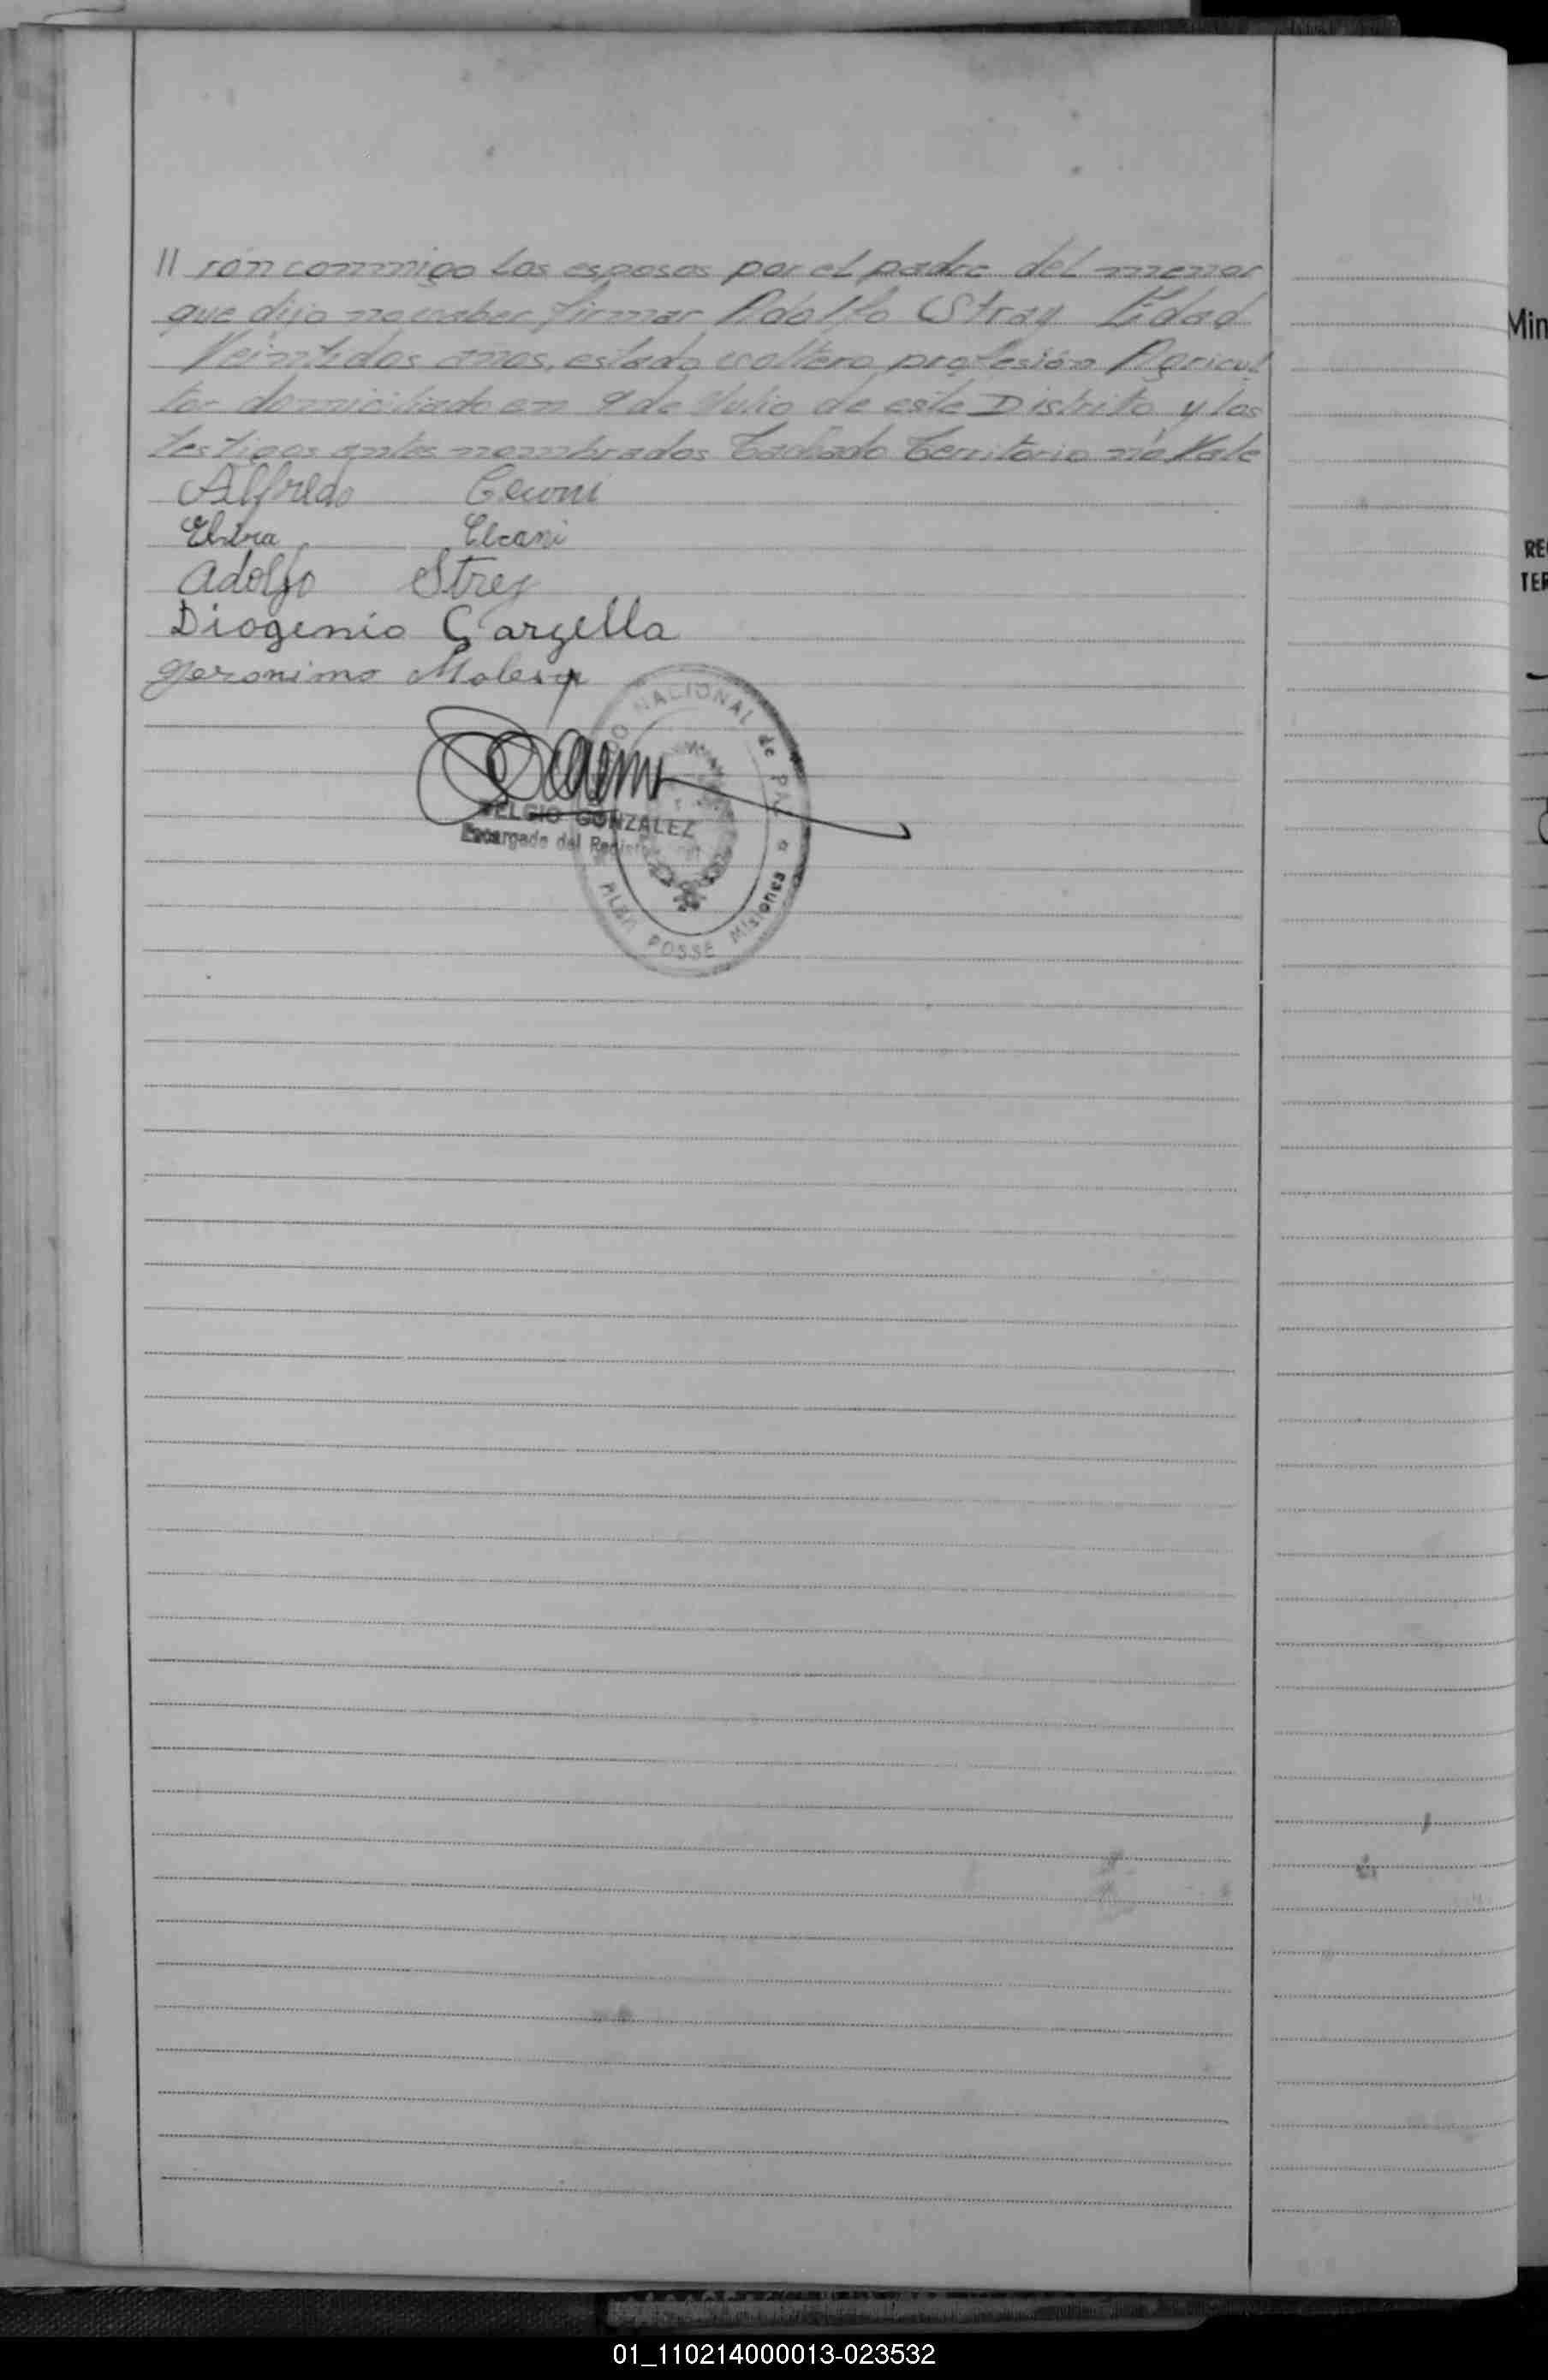 // rón conmigo los esposos por el padre del menor
que dijo no saber firmar Adolfo Stray Edad
Veintidos anos, estado soltero profesión Agricul
tor domiciliado en 9 de Julio de este Distrito y los
testigos antes nombrados Tachado Territorio no Vale
Alfredo
Adolfo Strey
Diogenio Garzella
Geronimo
NACIONAL de PAZ
BELGIO GONZALEZ
Encargado del Registro
POSSE Misiones
Min
RE
TER
01_110214000013-023532